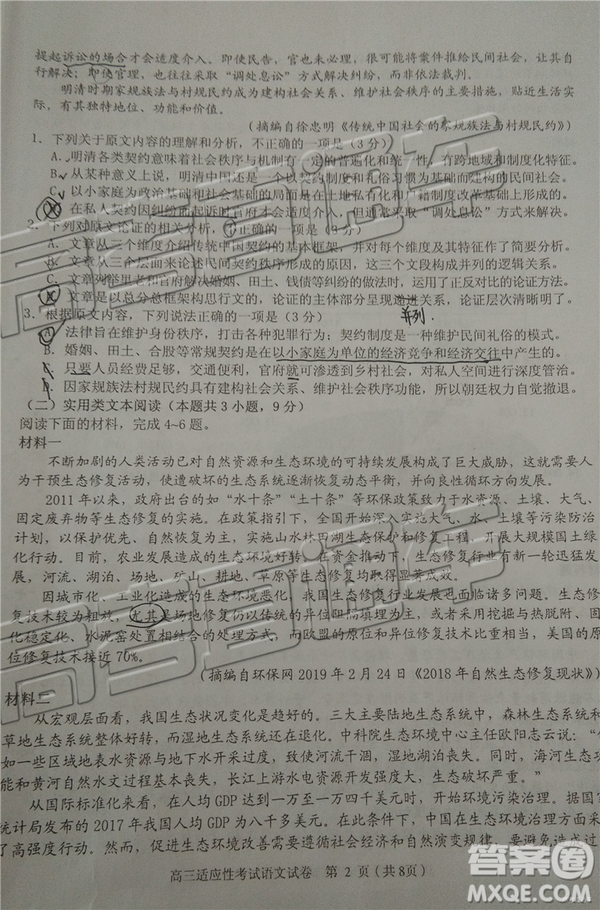 提起诉讼的场合才会适度介入。即使民告，官也未必理，很可能将案件推给民间社会，让其自
行解决；即使官理，也往往采取“调处息讼”方式解决纠纷，而非依法裁判。
明清时期家规族法与村规民约成为建构社会关系、维护社会秩序的主要措施，贴近生活
有其独特地位、功能和价值。
（摘编自徐忠明《传统中国社会的家规族法与村规民约》）
1．下列关于原文内容的理解和分析，不正确的一项是（3分）
A．明清各类契约意味着社会秩序与机制有一定的普遍化和统一性，有跨地域和制度化特征。
B．从某种意义上说，明清中国还是一个以契约制度和礼俗习惯为基础而建构的民间社会。
C．以小家庭为政治基础和经济基础的制度是在土地私有化和户籍制度改革基础上形成的。
D．在私人契约因纠纷而起诉时官府才会适度介入，但通常采取“调处息讼”方式来解决。
2．下列对原文论证的相关分析，不正确的一项是（3分）
A．文章从三个维度介绍传统中国契约的基本框架，并对其意义和作用进行了简要分析。
B．文章从三个层面来论述民间契约形成的原因，这三个文段之间是并列的逻辑关系。
C．文章列举里老和官府解决婚姻、田土、钱债等纠纷的做法时，运用了正反对比的方法。
D．文章是以总分总框架结构思行文的，论证的主体部分呈现递进关系，论证层次清晰明了。
并列．
3．根据原文内容，下列说法正确的一项是（3分）
A．法律旨在维护身份秩序，打击各种犯罪行为；契约制度是一种维护民间礼俗的模式。
B．婚姻、田土、合股等常规契约是在以小家庭为单位的经济竞争和经济交往中产生的。
C．只要人员经费足够，交通便利，官府就可渗透到乡村社会，对私人空间进行深度管理。
D．因家规族法村规民约具有建构社会关系、维护社会秩序等功能，所以朝廷权力自觉撤出。
（二）实用类文本阅读（本题共3小题，9分）
阅读下面的材料，完成4~6题。
材料一
不断加剧的人类活动已对自然资源和生态环境的可持续发展构成了巨大威胁，这就需要人
为干预生态修复活动，使遭破坏的生态系统逐渐恢复动态平衡，并向良性循环方向发展。
2011年以来，政府出台的如“水十条”“土十条”等环保政策致力于水资源、土壤、大气、
固定废弃物等生态修复的实施。在政策指引下，全国开始深入实施大气、水、土壤等污染防治
计划，以保护优先、自然恢复为主，实施山水林田湖生态保护和修复工程，开展大规模国土绿
化行动。目前，农业发展造成的生态环境好转，在资金推动下，生态修复行业有新一轮迅猛发
展，河流、湖泊、场地、矿山、耕地、草原等生态修复均取得显著成效。
因城市化、工业化造成的生态环境恶化，我国生态修复行业发展也面临诸多问题。生态修
复技术较为粗放，尤其是场地修复仍以传统的异位阻隔填埋为主，或者采用异位与热脱附、固
化稳定化、水泥窑处置相结合的处理方式，而欧盟的原位和异位修复技术比例相当，美国的原
位修复技术接近70%。
（摘编自环保网2019年2月24日《2018年自然生态修复现状》）
材料二
从宏观层面看，我国生态状况变化是趋好的。三大主要陆地生态系统中，森林生态系统和
草地生态系统在好转，而湿地生态系统还在退化。中科院生态环境中心主任欧阳志云说：“
如一些区域地表水资源与地下水开采过度，致使河流干涸，湖泊萎缩甚至丧失，海河生态功
能和黄河自然水文过程基本丧失，长江上游水电资源开发强度过大，生态破坏严重。”
从国际标准化来看，在人均GDP达到一万至一万四千美元时，开始环境污染治理。据国
统计局发布的2017年我国人均GDP为八千多美元。在此条件下，促进生态环境
了高强度行动。然而，促进生态环境改善需要遵循社会经济和自然演变规律，要避免造成过
高三适应性考试语文试卷 第2页（共8页）
高考直通车
答案圈
MXQE.COM